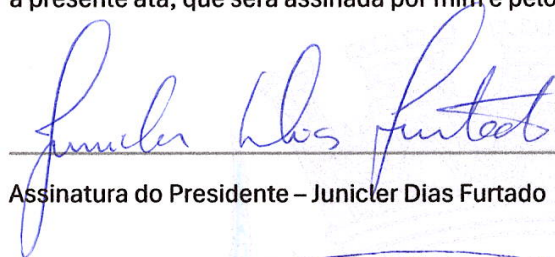 a presente ata, que será assinada por mim e pelo
Junicler Dias Furtado
Assinatura do Presidente – Junicler Dias Furtado